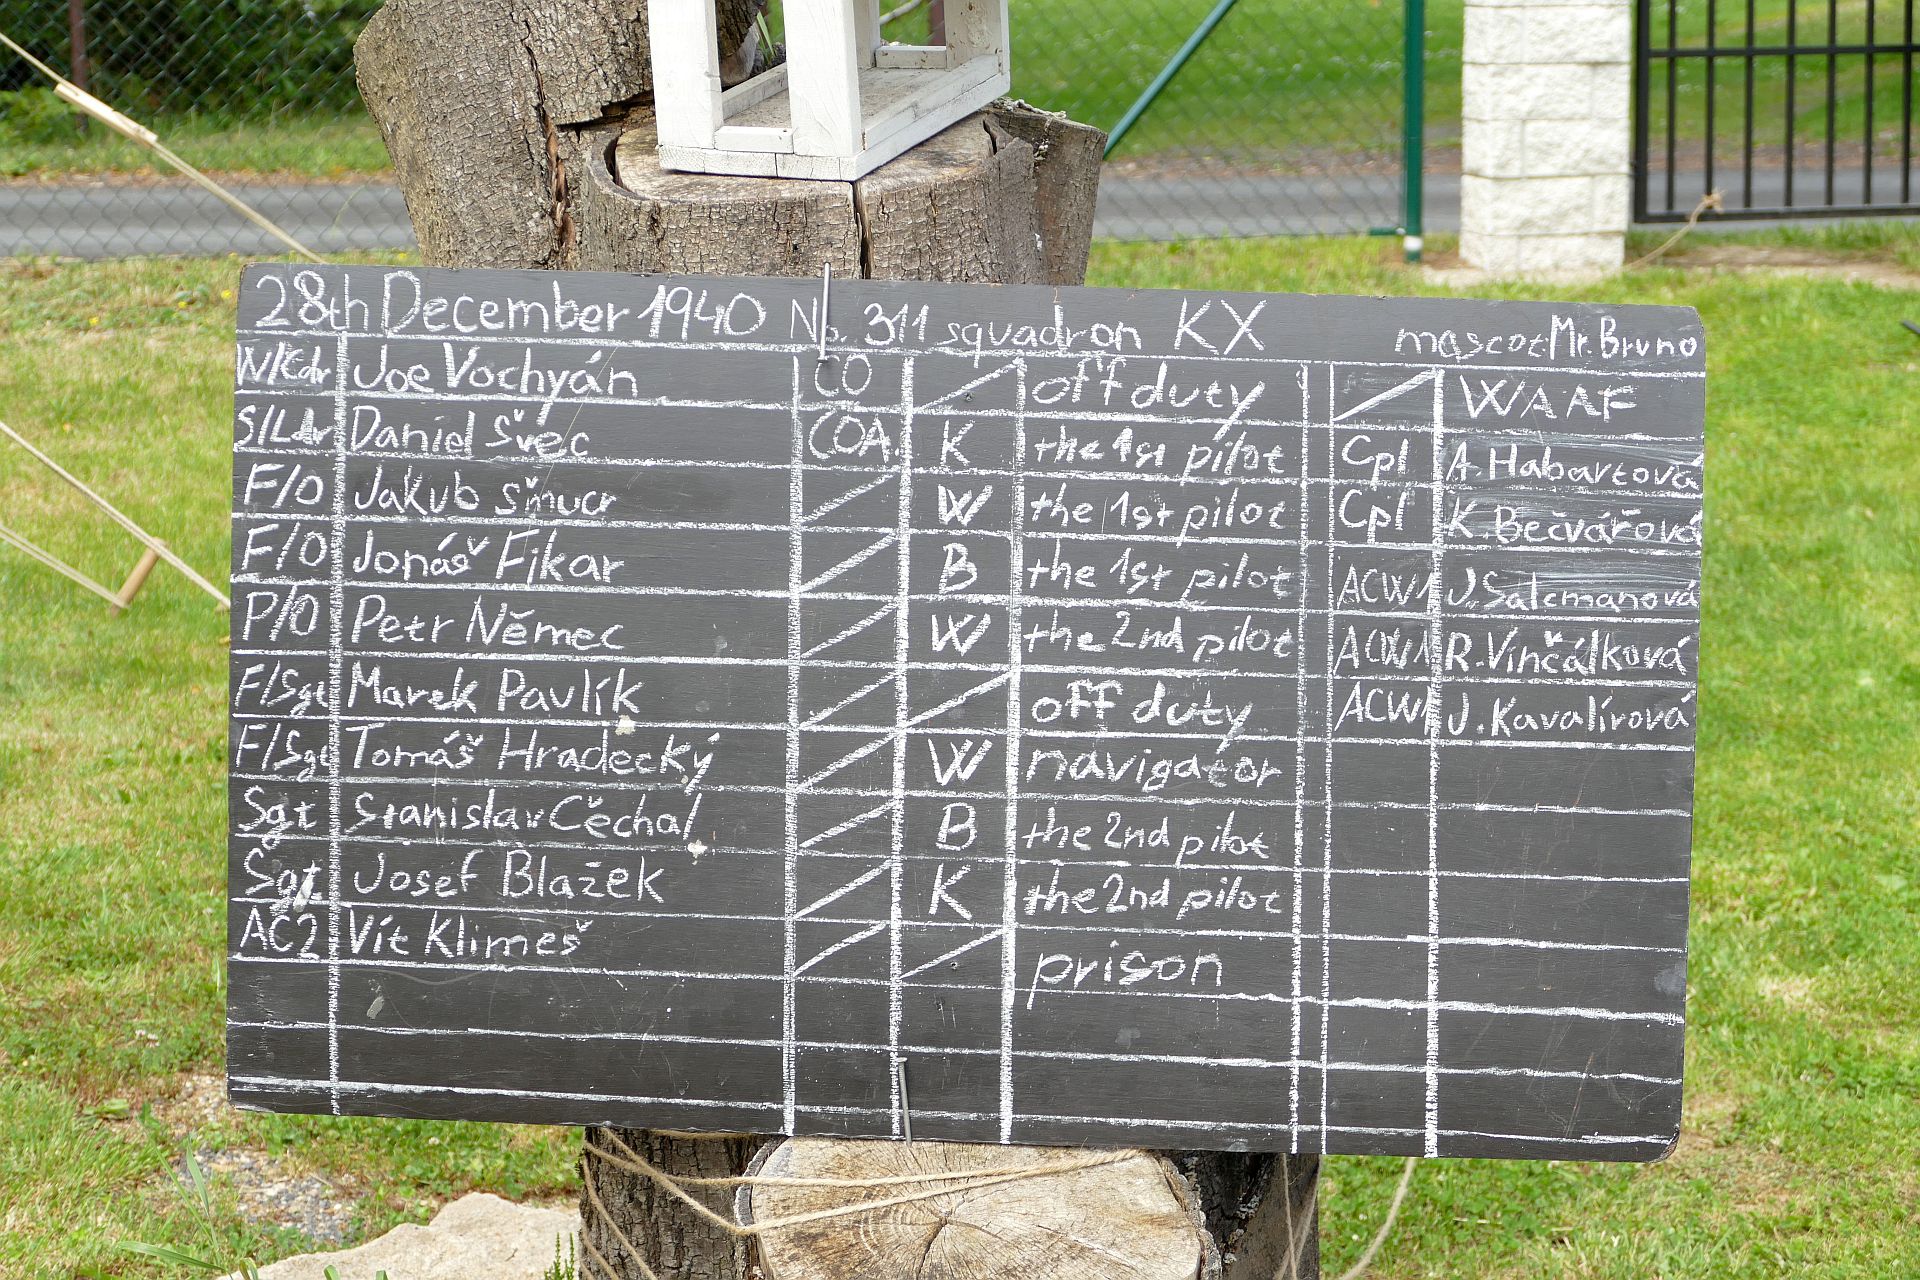 28th December 1940 No. 311 squadron KX mascot: Mr. Bruno
W/Cdr Joe Vochyán CO off duty WAAF
S/Ldr Daniel Švec COA. K the 1st pilot Cpl A. Habartová
F/O Jakub Šmucr W the 1st pilot Cpl K. Bečvářová
F/O Jonáš Fikar B the 1st pilot ACW1 J. Salcmanová
P/O Petr Němec W the 2nd pilot ACW1 R. Vinčálková
F/Sgt Marek Pavlík off duty ACW1 J. Kavalírová
F/Sgt Tomáš Hradecký W navigator
Sgt Stanislav Čěchal B the 2nd pilot
Sgt Josef Blažek K the 2nd pilot
AC2 Vít Klimeš prison